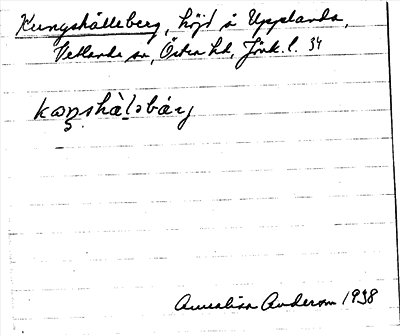 Kungshälleberg, höjd å Upplanda,
Vetlanda sn, Östra hd, Jönk. l. 34
kəŋshàlsbárj
Annalisa Anderson 1938